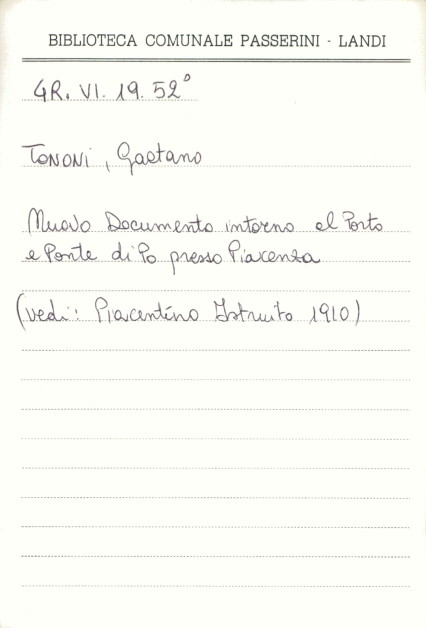 BIBLIOTECA COMUNALE PASSERINI - LANDI
GR. VI. 19. 52°
TONONI, Gaetano
Nuovo Documento intorno al Porto
e Ponte di Po presso Piacenza
(vedi: Piacentino Istruito 1910)